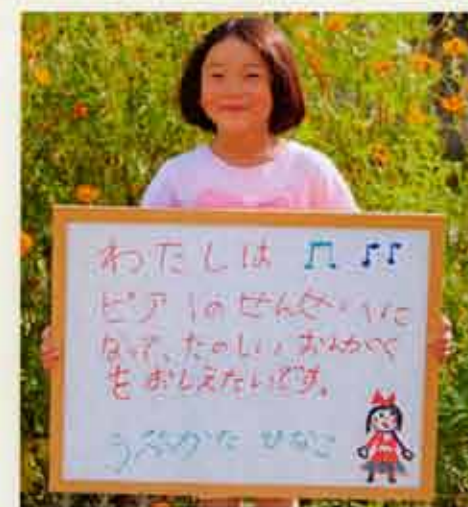 わたしは
ピアノのせんせいに
なって、たのしいおんがく
をおしえたいです。
ひなこ